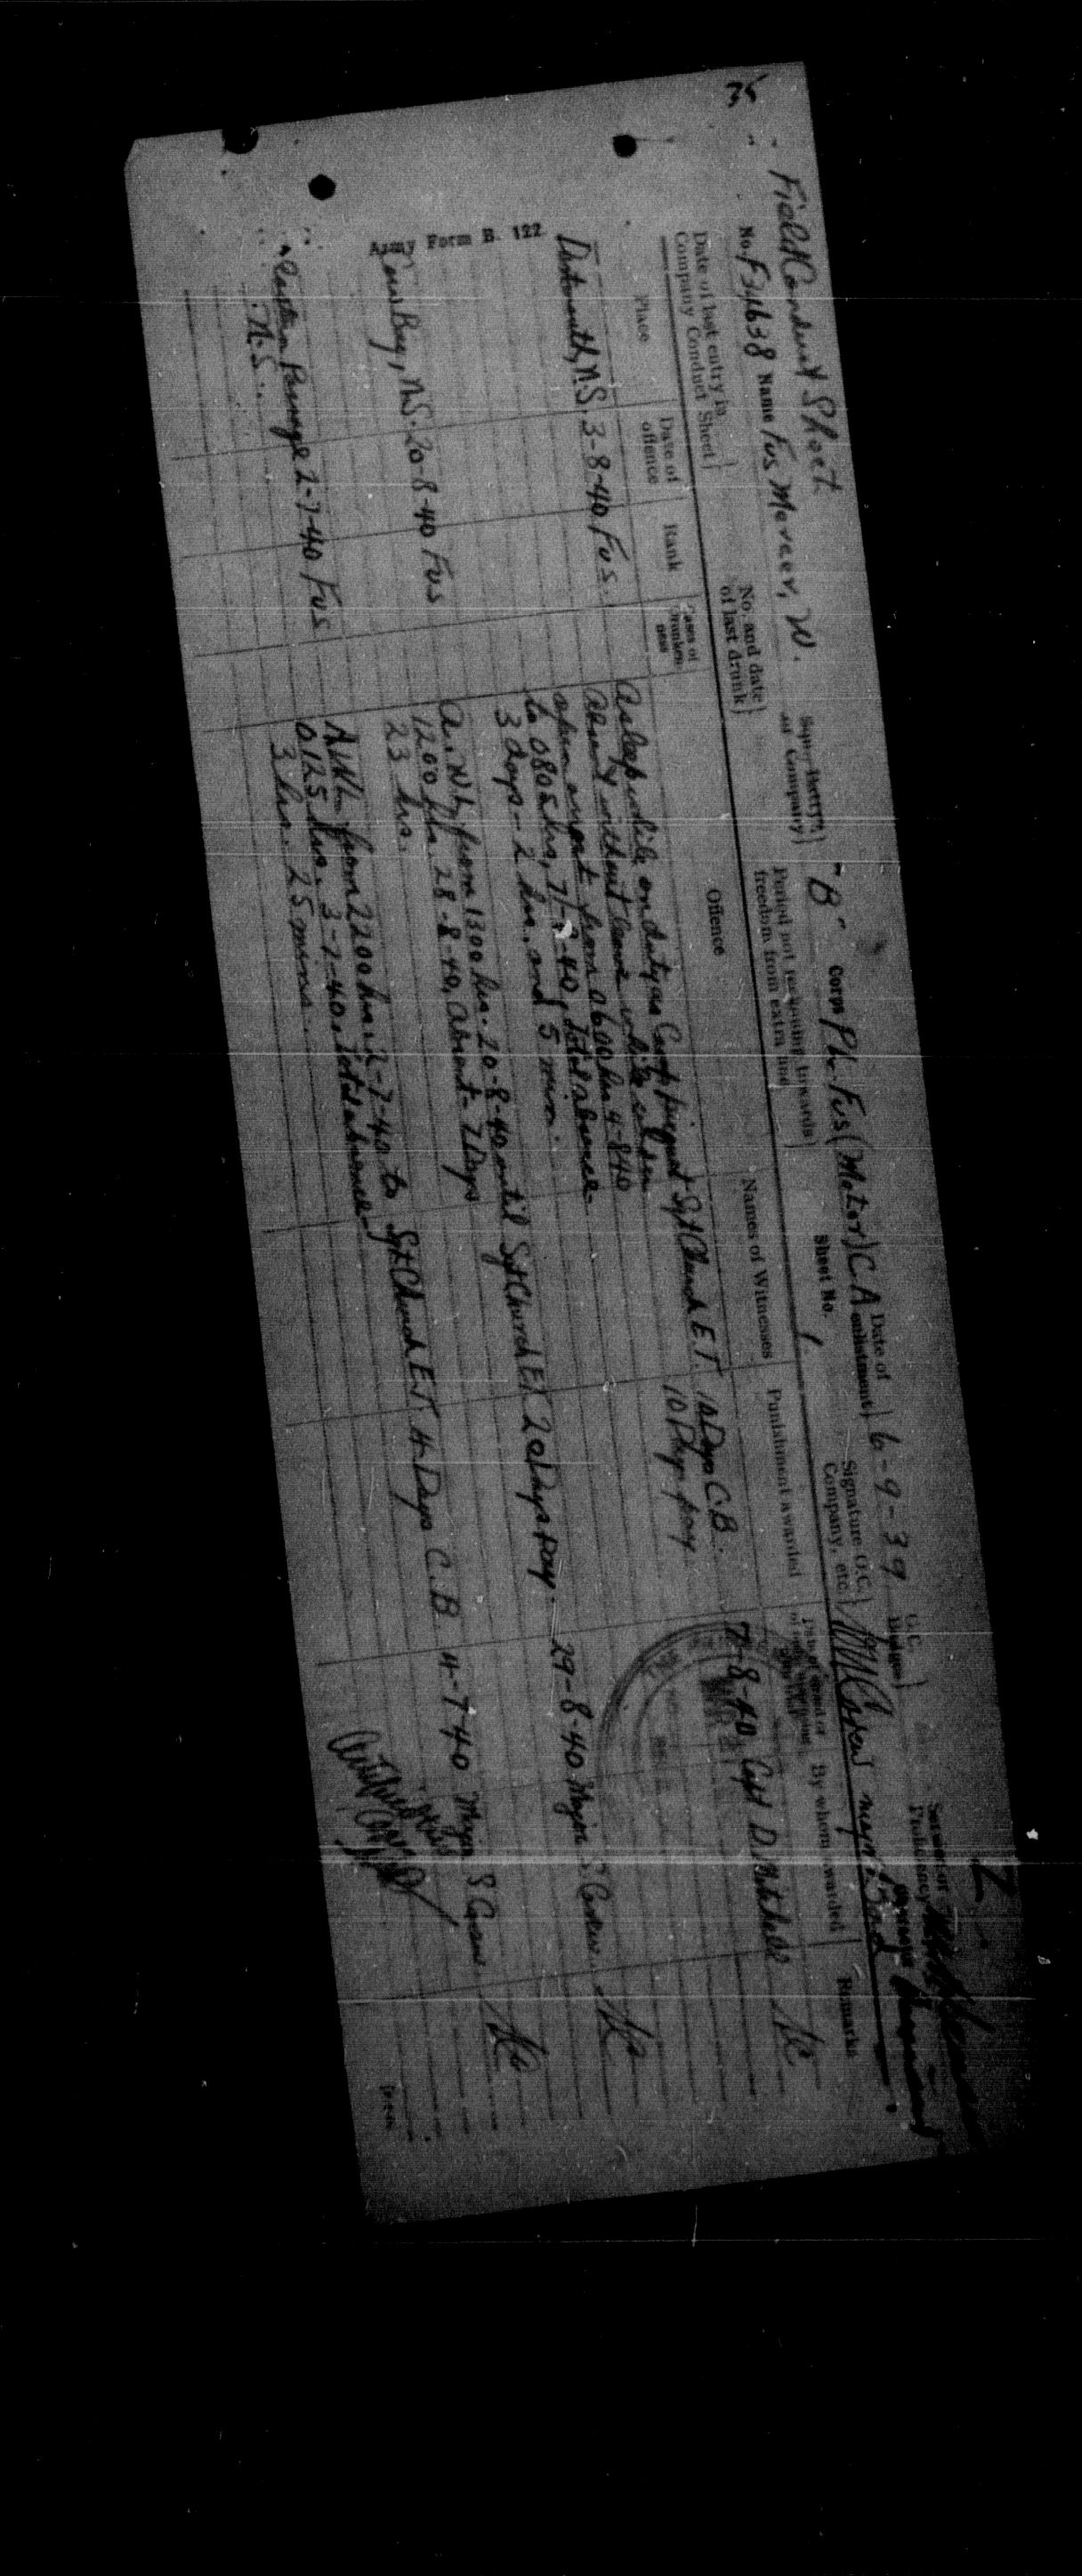 35
Field Conduct Sheet
No. F34638 Name Fus Mercer, W. Sqn., Batty. or Company} "B" Corps P.L. Fus (Motor) C.A. Date of enlistment} 6-9-39 G.C. Badges} Service or Proficiency
2.
Date of last entry in Company Conduct Sheet} No. and date of last drunk} Period not reckoning towards freedom from extra and} Sheet No. 1. Signature O.C. Company, etc.} Major
Place Date of offence Rank Cases of Drunkenness Offence Names of Witnesses Punishment awarded Date of award By whom awarded Remarks
Dartmouth, N.S. 3-8-40 Fus. Asleep while on duty as Camp picquet Sgt Church E.T. 10 Days C.B. 7-8-40 Capt D.
Absent without leave while under 10 Days pay
open arrest from 0600 hrs 4-8-40
to 0805 hrs, 7-8-40, Total absence
3 days - 2 hrs, and 5 min.
Army Form B. 122
Cow Bay, N.S. 20-8-40 Fus A.W.L. from 1300 hrs. 20-8-40 until Sgt Church E.T. 20 Days Pay. 29-8-40 Major S Carew
1200 hrs. 28-8-40, absent - 7 Days
23 hrs.
Eastern Passage 2-7-40 Fus AWL from 2200 hrs. 2-7-40 to Sgt Church E.T. 4 Days C.B. 4-7-40 Major S Carew
N.S. 0125 hrs. 3-7-40, Total absence
3 hrs. 25 mins.
Certified